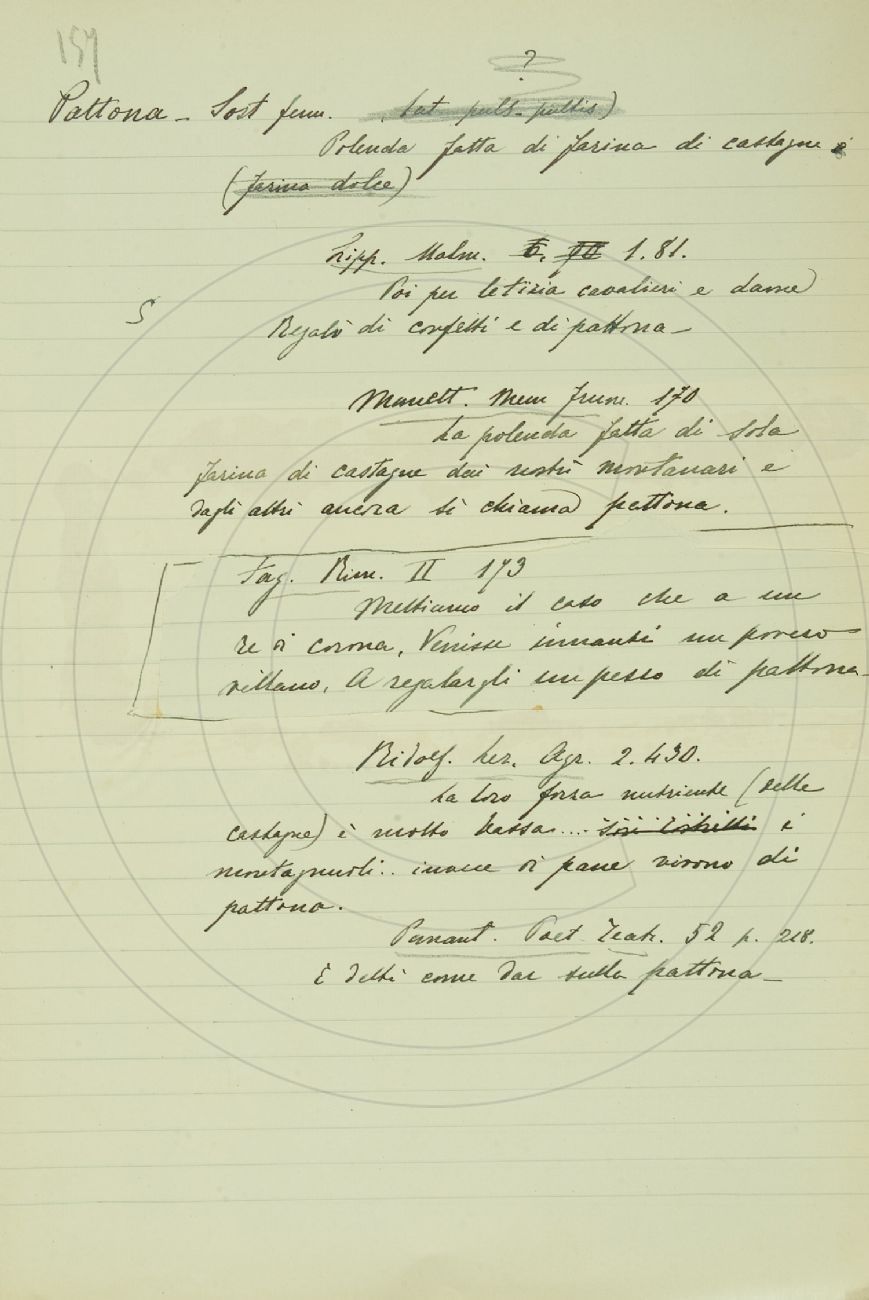 154
?
Pattona - Sost fem. (Lat puls-pultis)
Polenda fatta di farina di castagne
(farina dolce)
Lipp. Malm. 6. 1.81.
Poi per letizia cavalieri e dame
S
Regalò di confetti e di pattona -
Manett. Mem frum. 170
La polenda fatta di sola
farina di castagne dai nostri montanari e
dagli altri ancora si chiama pattona.
Fag. Rim. II 173
Mettiamo il caso che a un
re di corona, Venisse innanti un povero
villano, A regalargli un pezzo di pattona -
Ridolf. Lez. Agr. 2.430.
La loro forza nutriente (delle
castagne) è molto bassa.... i
montagnuoli.. invece di pane vivono di
pattona.
Panant. Poet Teatr. 52 p. 218.
E detti come dar sulla pattona -